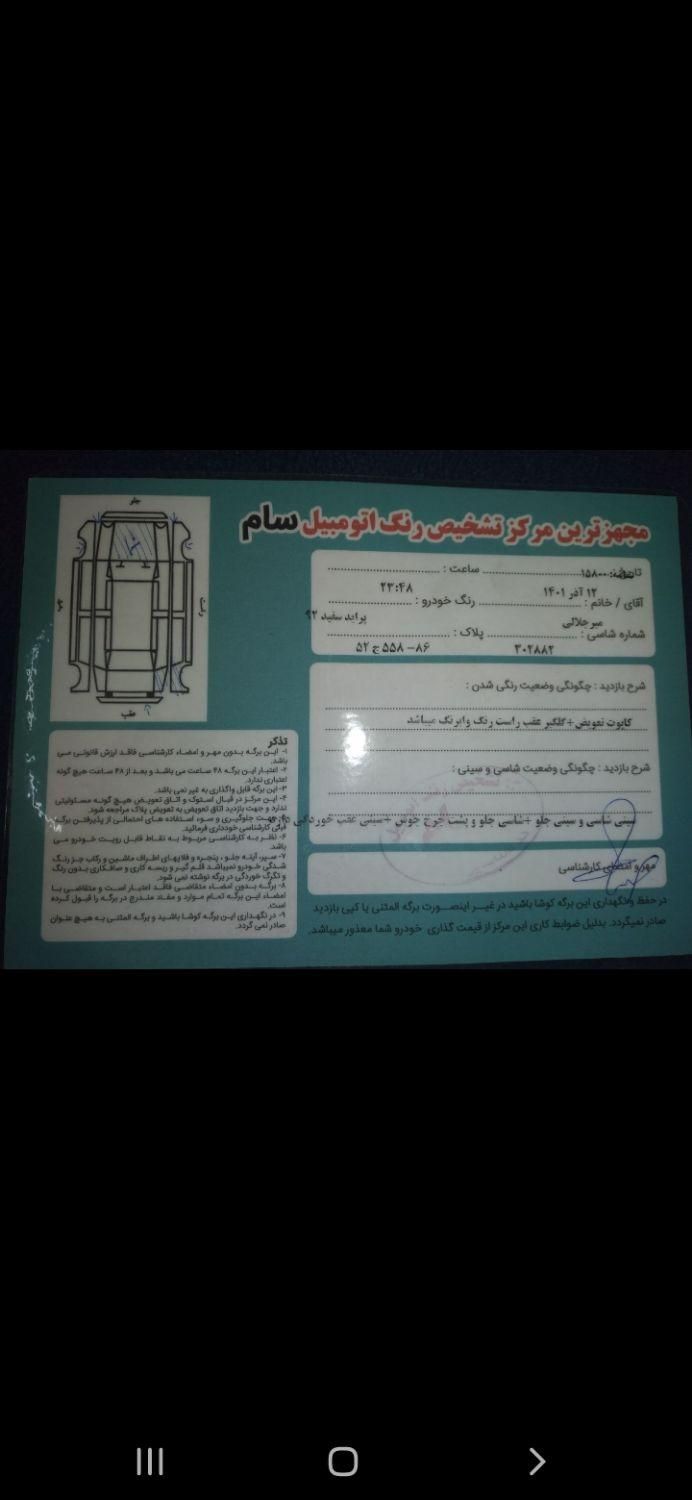 مجهزترین مرکز تشخیص رنگ اتومبیل سام
تاریخ: ۱۵۸۰۰ ساعت :
۱۲ آذر ۱۴۰۱ ۲۳:۴۸
آقای / خانم : رنگ خودرو :
میرجلالی پراید سفید ۹۲
شماره شاسی : پلاک :
۳۰۲۸۸۲ ۸۶- ۵۵۸ ج ۵۲
شرح بازدید : چگونگی وضعیت رنگی شدن :
کاپوت تعویض+گلگیر عقب راست رنگ وابرنگ میباشد
شرح بازدید : چگونگی وضعیت شاسی و سینی :
سینی شاسی و سینی جلو +شاسی جلو و پشت چرخ جوش +سینی عقب خوردگی
مهر و امضای کارشناسی
در حفظ ونگهداری این برگه کوشا باشید در غیر اینصورت برگه المثنی یا کپی بازدید
صادر نمیگردد. بدلیل ضوابط کاری این مرکز از قیمت گذاری خودرو شما معذور میباشد.
جلو
راست
چپ
عقب
تذکر
۱- این برگه بدون مهر و امضاء کارشناسی فاقد ارزش قانونی می
باشد.
۲- اعتبار این برگه ۴۸ ساعت می باشد و بعد از ۴۸ ساعت هیچ گونه
اعتباری ندارد.
۳- این برگه قابل واگذاری به غیر نمی باشد.
۴- این مرکز در قبال استوک و اتاق تعویض هیچ گونه مسئولیتی
ندارد و جهت بازدید اتاق تعویض به تعویض پلاک مراجعه شود.
۵- جهت جلوگیری و سوء استفاده های احتمالی از پذیرفتن برگه
قبلی کارشناسی خودداری فرمائید.
۶- نظر به کارشناسی مربوط به نقاط قابل رویت خودرو می
باشد
۷- سپر، آینه جلو، پنجره و فلاپهای اطراف ماشین و رکاب جز رنگ
شدگی خودرو نمیباشد قلم گیر و ریسه کاری و صافکاری بدون رنگ
و تگرگ خوردگی در برگه نوشته نمی شود.
۸- برگه بدون امضاء متقاضی فاقد اعتبار است و متقاضی با
امضاء این برگه تمام موارد و مفاد مندرج در برگه را قبول کرده
است.
۹- در نگهداری این برگه کوشا باشید و برگه المثنی به هیچ عنوان
صادر نمی گردد.